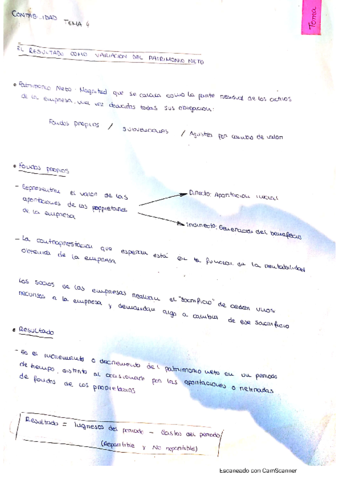 CONTABILIDAD TEMA 6
Tema
EL RESULTADO COMO VARIACIÓN DEL PATRIMONIO NETO
• Patrimonio Neto: Magnitud que se calcula como la parte residual de los activos
de la empresa, una vez deducidas todas sus obligaciones
Fondos propios / subvenciones / Ajustes por cambio de valor
• Fondos propios
- Representa el valor de las
aportaciones de los propietarios
a la empresa
Directo: Aportación inicial
Indirecto: Generación del beneficio
- La contraprestación que esperan está en la función de la rentabilidad
obtenida de la empresa
Los socios de las empresas realizan el "sacrificio" de ceder unos
recursos a la empresa y demandan algo a cambio de ese sacrificio
• Resultado
- es el incremento o decremento del patrimonio neto en un periodo
de tiempo, distinto al ocasionado por las aportaciones o retiradas
de fondos de los propietarios
Resultado = Ingresos del periodo - Gastos del periodo
(Repartible y No repartible)
Escaneado con CamScanner